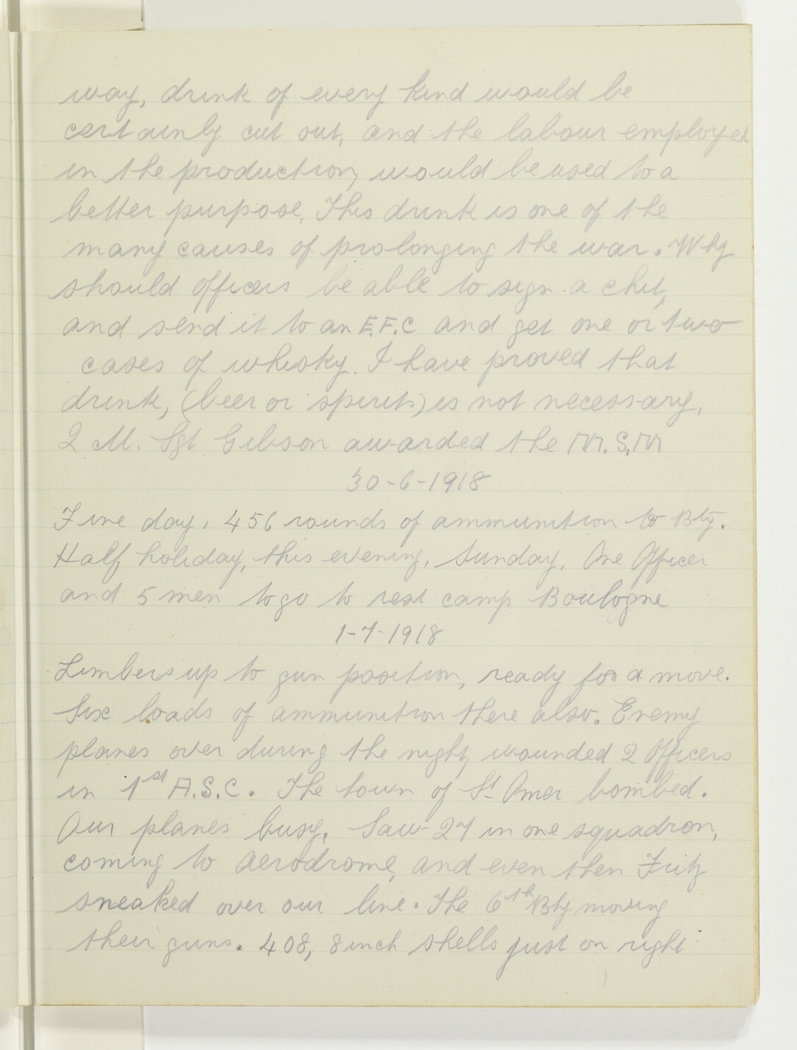 way, drink of every kind would be
certainly cut out, and the labour employed
in the production, would be used to a
better purpose, This drink is one of the
many causes of prolonging the war. Why
should officers be able to sign a chit,
and send it to an E.F.C and get one or two
cases of whisky. I have proved that
drink, (beer or spirits) is not necessary,
Q M. Sgt Gibson awarded the M.S.M
30-6-1918
Fine day, 456 rounds of ammunition to Bty.
Half holiday, this evening, Sunday. One Officer
and 5 men to go to rest camp Boulogne
1-7-1918
Limbers up to gun position, ready for a move.
Six loads of ammunition there also. Enemy
planes over during the night, wounded 2 Officers
in 1st A.S.C. The town of St Omer bombed.
Our planes busy. Saw 27 in one squadron,
coming to Aerodrome, and even then Fritz
sneaked over our line. The 6th Bty moving
their guns. 408, 8 inch shells just on right